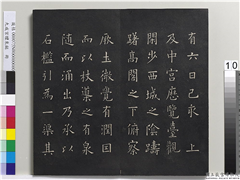 有六日己亥上
及中宮歷覽臺觀
閑步西城之陰躊
躇高閣之下俯察
厥土微覺有潤因
而以杖導之有泉
隨而涌出乃承以
石檻引為一渠其
10